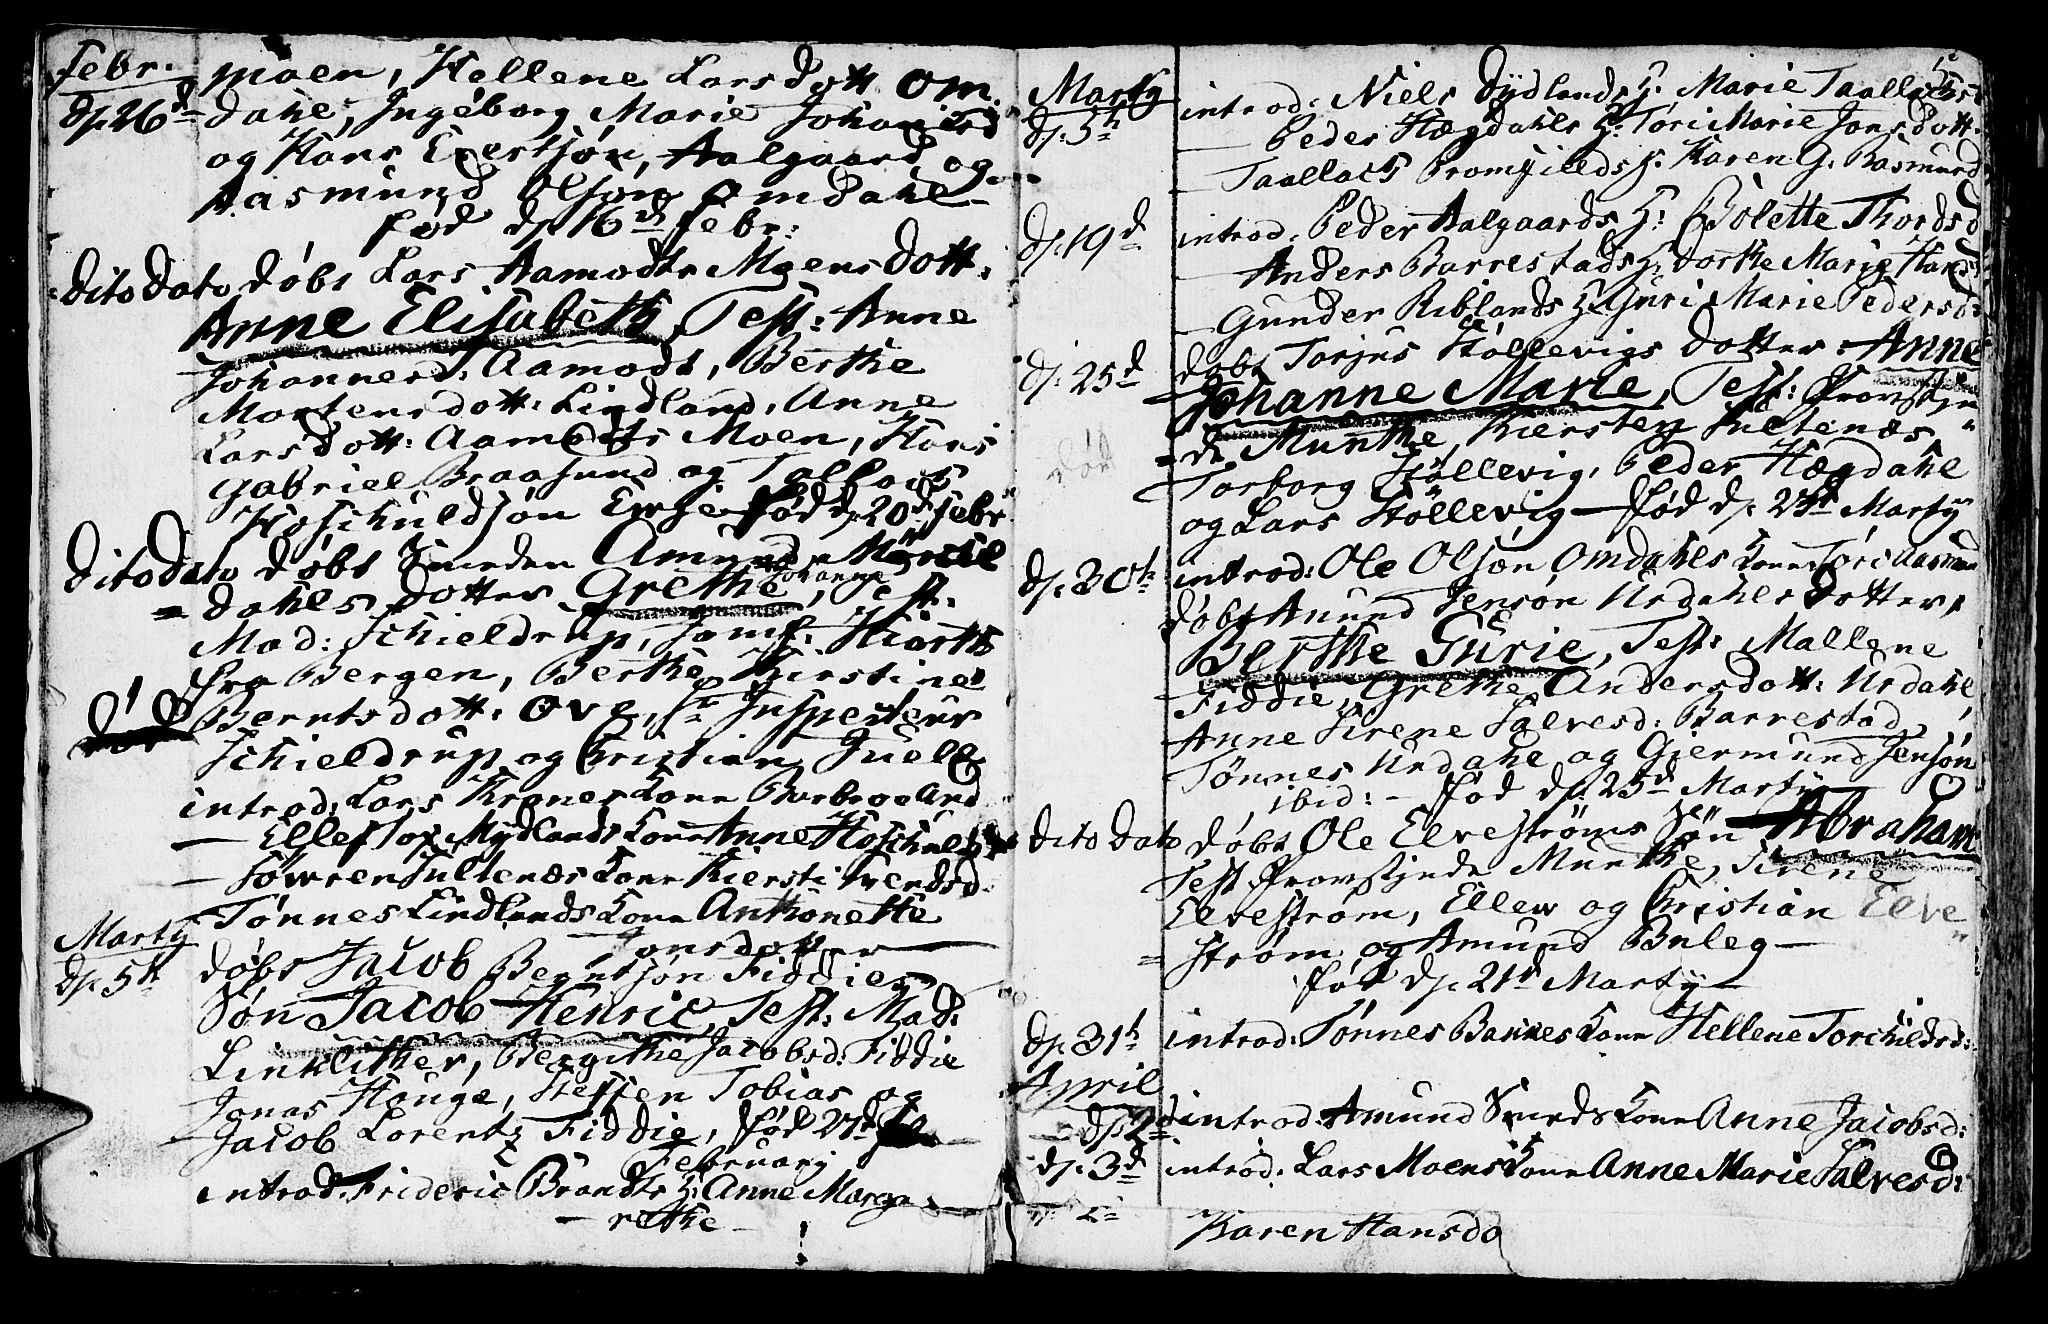 Febr. moen, Hellene Larsdott Om
dp. 26d dahl, Ingeborg Marie Johansd
og Hans Evertsøn, Aalgaard og
Aasmund Olsøn Omdahl
fød dp 16d Febr:
dito dato døbt Lars Aamodts Moens dott:
Anne Elisabeth, Test: Anne
Johannesd: Aamodt, Berthe
Mortensdott: Lindland, Anne
Larsdott: Aamodts Moen, Hans
Gabriel Braasund og Tallach
Hoschuldsøn Ersie fød d. 20d Febr
dito dato døbt Smeden Amund
dahls dotter Grethe Johanne, Test:
Mad: Schieldrup, Jomf: Hiorth
fra Bergen, Berthe Kirstine
død Berntsdott: Ove, Hr Inspecteur
Schieldrup og Christian Juell
introd: Lars Kranes Kone Barbroe And
— Ellef Mydlands Kone Anne Hoschulds
— Søwren Sultenæs Kone Kiersti Svendsd.
— Tønnes Lindlands Kone Anthonette
Jonsdotter
Marty
dp. 5t døbt Jacob Berntsøn Fiddies
Søn Jacob Henric Test: Mad:
Linklither, Bergithe Jacobsd: Fiddie
Jonas Houge, Steffen Tobias og
Jacob Lorentz Fiddie, fød 27d
February
introd. Frideric Brandts H: Anne Marga
— rethe —
Marty
dp. 5t introd: Niels Dydlands H: Marie Taallachsd
— Peder Hægdahls H: Tori Marie Jonsdott.
— Taallach Promfields H. Karen G. Rasmusd
dp. 19d introd: Peder Aalgaards H: Bolette Thordsd
— Anders Barrestads H: Dorthe Marie Hansd
— Gunder Riblands H. Guri Marie Pedersd:
dp. 25d døbt Torjus Støllevigs dotter: Anne
Johanne Marie, Test: Provstjn
de Munthe, Kiersten Sultenæs
død Torborg Støllevig, Peder Hægdahl
og Lars Støllevig — fød dp. 23d Marty
dp. 30t introd: Ole Olsøn Omdahls Kone Tori Aasmun
døbt Anund Jensøn Urdahls dotter
Berthe Gurie, Test: Mallene
Fiddie, Grethe Andersdott: Urdahl,
Anne Sirene Salvesd: Barrestad,
Tønnes Urdahl og Giermund Jensøn
ibid: — fød dp 25d Marty
dito dato døbt Ole Elvestrøms Søn Abraham
Test Provstjnde Munthe, Sirene
Elvestrøm, Ellew og Christian Elve
strøm og Amund Buleg —
fød dp. 21d Marty —
dp. 31t introd: Tønnes Bakkes Kone Hellene Torchildsd:
April
dp 2d introd: Amund Smeds Kone Anne Jacobsd:
dp. 3d introd: Lars Moens Kone Anne Marie Salvesd:
Karen Hansdo